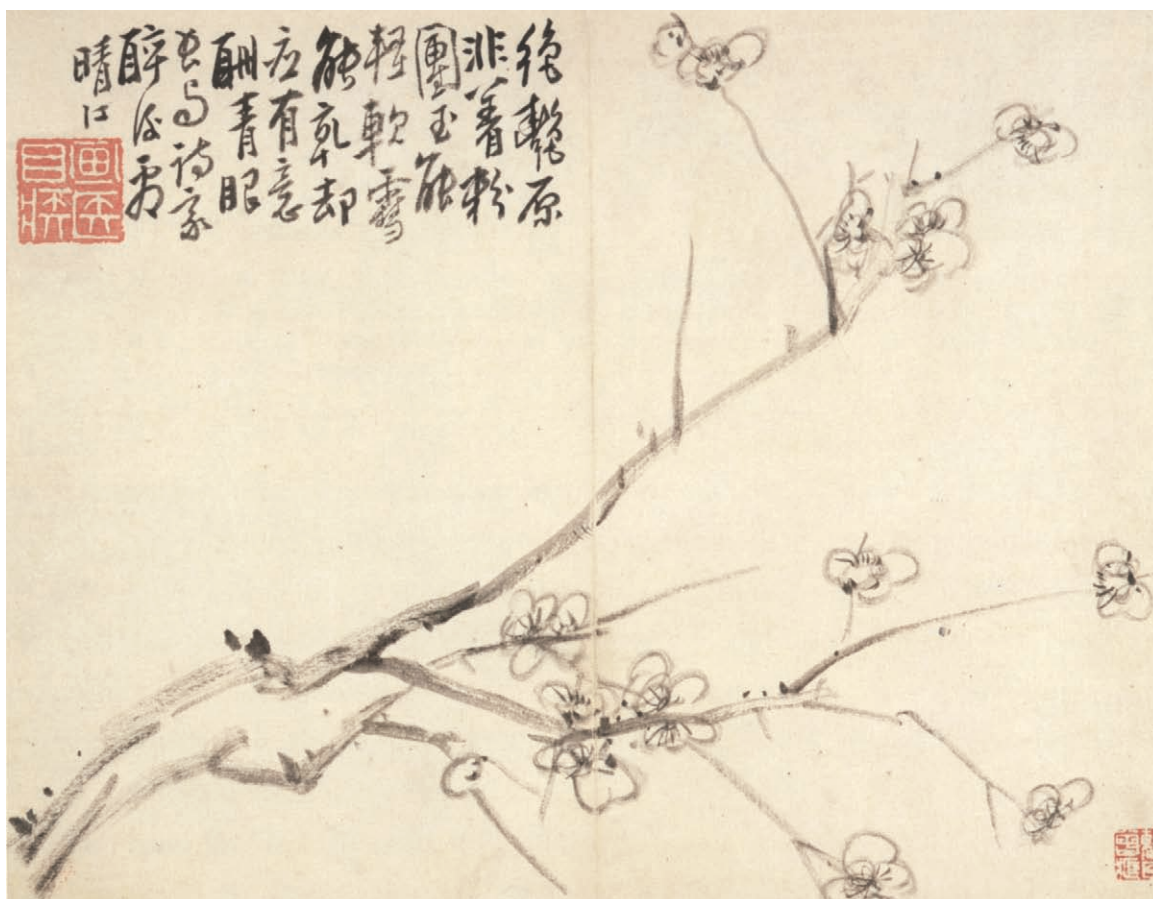 穠艷原
非着粉
團玉能
輕軟雪
能乾却
应有意
酬青眼
長与詩家
醉後看
晴江